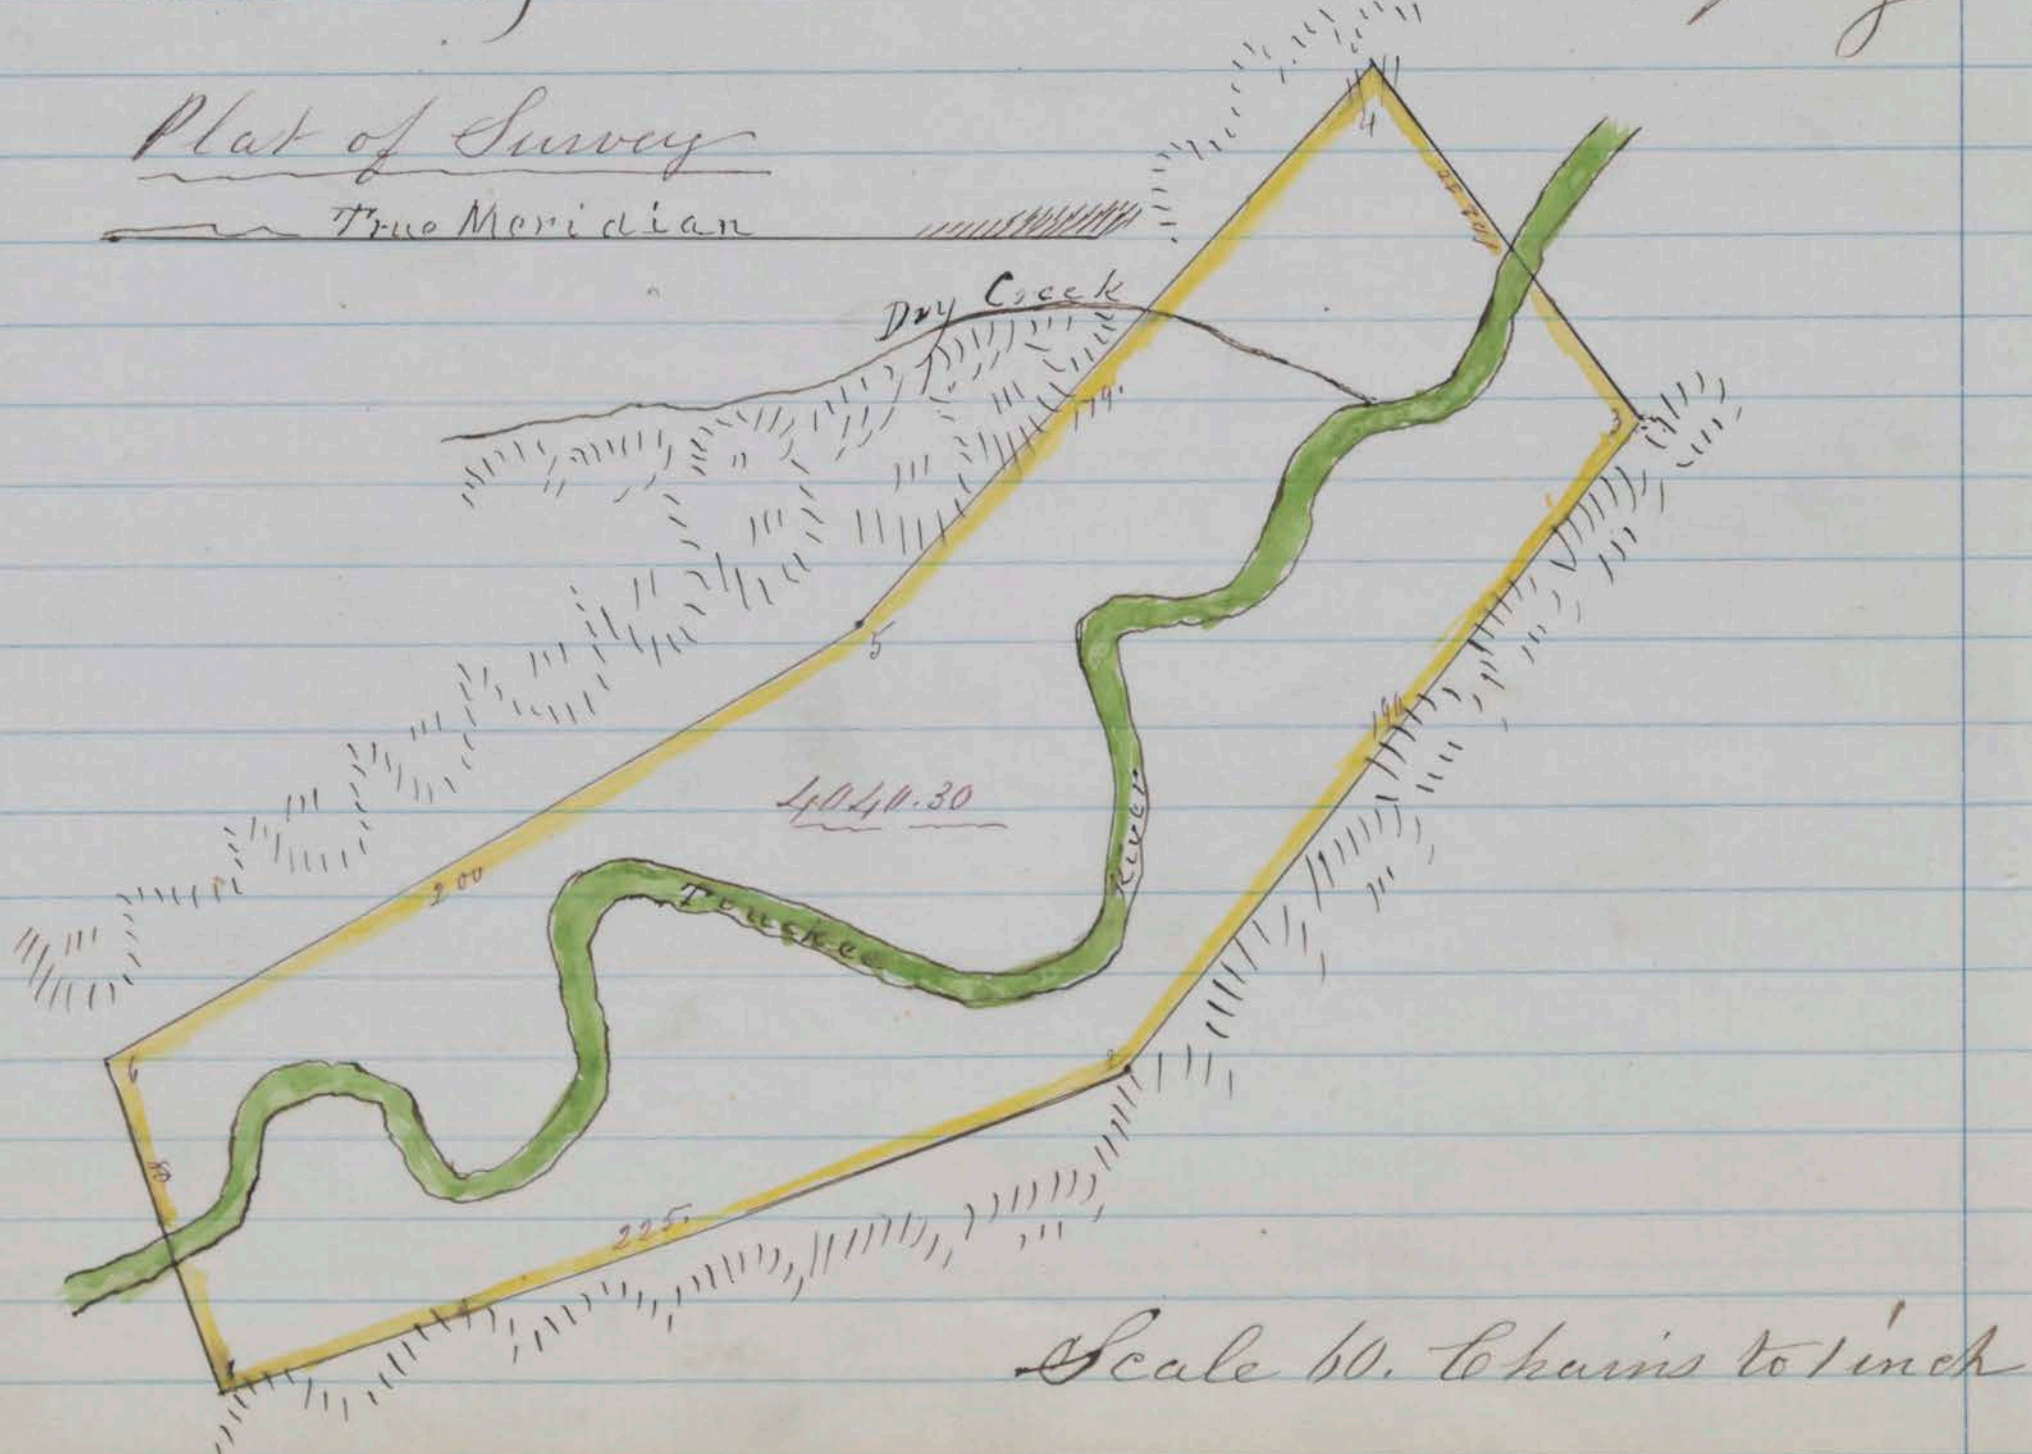 Plat of Survey
True Meridian
4
Dry Creek
3
179.
5
190
4040.30
River
200
Truckee
2
6
80
225.
1
Scale 60. Chains to 1 inch